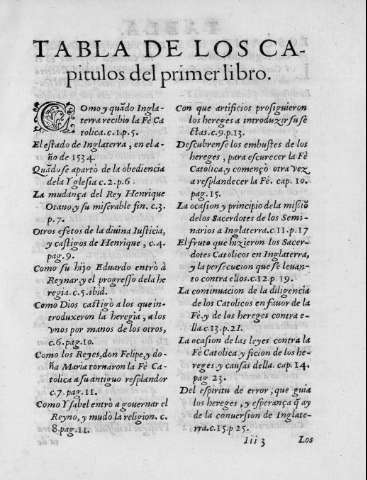 TABLA DE LOS CA-
pitulos del primer libro.
COmo y quãdo Ingla-
terra recibio la Fè Ca
tolica.c.1.p.5.
El estado de Inglaterra, en el a-
ño de 1534.
Quãdo se apartò de la obediencia
dela Yglesia c.2.p.6.
La mudança del Rey Henrique
Otauo, y su miserable fin. c.3.
p.7.
Otros efetos de la diuina Iusticia,
y castigos de Henrique, c.4.
pag.9.
Como su hijo Eduardo entrò à
Reynar, y el progresso dela he
regia. c.5. ibid.
Como Dios castigò a los que in-
troduxeron la heregia, a los
vnos por manos de los otros,
c.6.pag.10.
Como los Reyes, don Felipe, y do
ña Maria tornaron la Fè Ca-
tolica a su antiguo resplandor
c.7.pag.11.
Como Ysabel entrò a gouernar el
Reyno, y mudò la religion. c.
8.pag.11.
Con que artificios prosiguieron
los hereges a introduzir su se
ctas.c.9.p.13.
Descubrense los embustes de los
hereges, para escurecer la Fè
Catolica, y començò otra vez
a resplandecer la Fè. cap. 10.
pag.15.
La ocasion y principio dela missiõ
delos Sacerdotes de los Semi-
narios a Inglaterra.c.11.p.17
El fruto que hizieron los Sacer-
dotes Catolicos en Inglaterra,
y la persecucion que se leuan-
to contra ellos.c.12.p.19.
La continuacion de la diligencia
de los Catolicos en fauor de la
Fè, y de los hereges contra e-
lla.c.13.p.21.
La ocasion de las leyes contra la
Fè Catolica y ficion de los he-
reges, y causas della. cap. 14.
pag 23.
Del espiritu de error, que guia
los hereges, y esperança q̃ ay
de la conuersion de Inglate-
rra.c.15.p 25.
Iii 3 Los